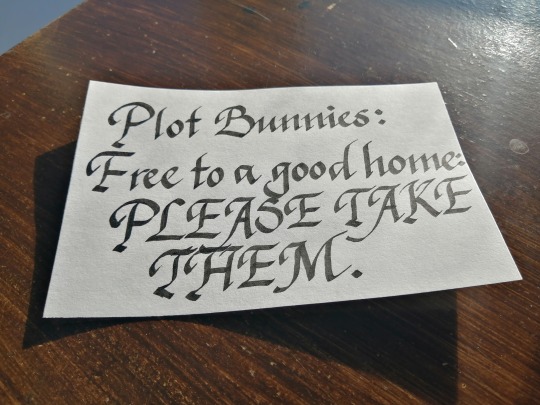 Plot Bunnies:
Free to a good home:
PLEASE TAKE
THEM.